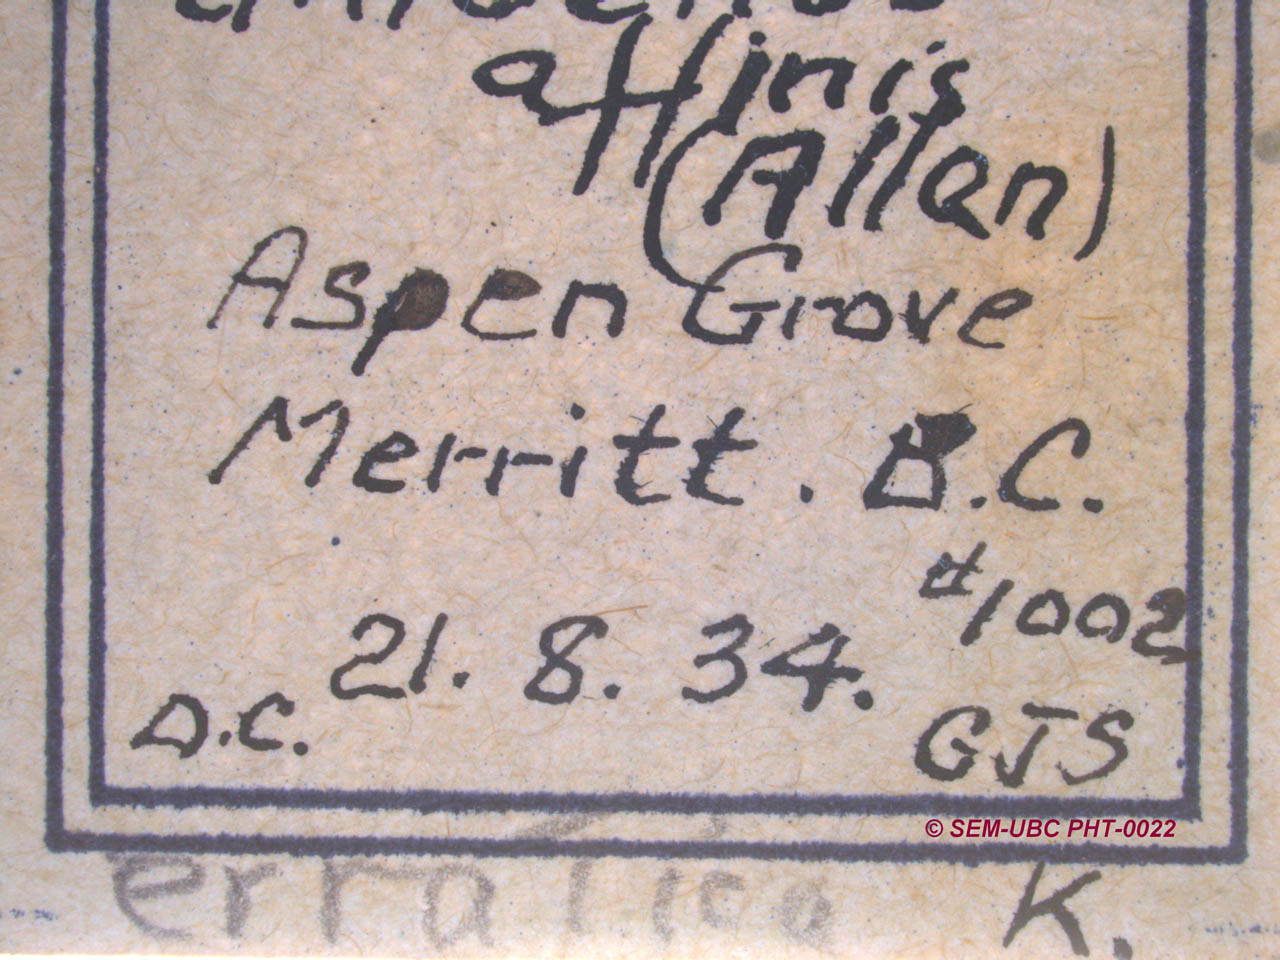 affinis
(Allan)
Aspen Grove
Merritt. B.C.
#1002
21. 8. 34.
D.C. GJS
© SEM-UBC PHT-0022
erratica K.